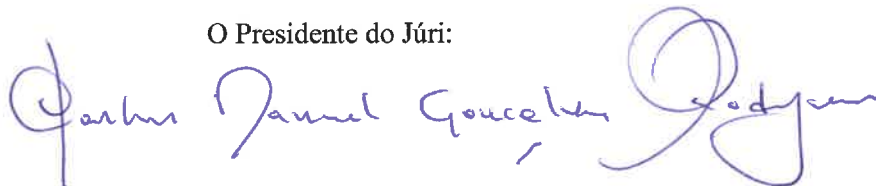 O Presidente do Júri:
Carlos Manuel Gonçalves Rodrigues